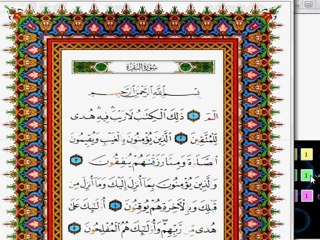 سُورَةُ البَقَرَةِ
بِسْمِ اللَّهِ الرَّحْمَٰنِ الرَّحِيمِ
الٓمٓ ١ ذَٰلِكَ الْكِتَٰبُ لَا رَيْبَ فِيهِ هُدًى
لِّلْمُتَّقِينَ ٢ الَّذِينَ يُؤْمِنُونَ بِالْغَيْبِ وَيُقِيمُونَ
الصَّلَوٰةَ وَمِمَّا رَزَقْنَٰهُمْ يُنفِقُونَ ٣
وَالَّذِينَ يُؤْمِنُونَ بِمَا أُنزِلَ إِلَيْكَ وَمَا أُنزِلَ مِن
قَبْلِكَ وَبِالْآخِرَةِ هُمْ يُوقِنُونَ ٤ أُو۟لَٰٓئِكَ عَلَىٰ
هُدًى مِّن رَّبِّهِمْ وَأُو۟لَٰٓئِكَ هُمُ الْمُفْلِحُونَ ٥